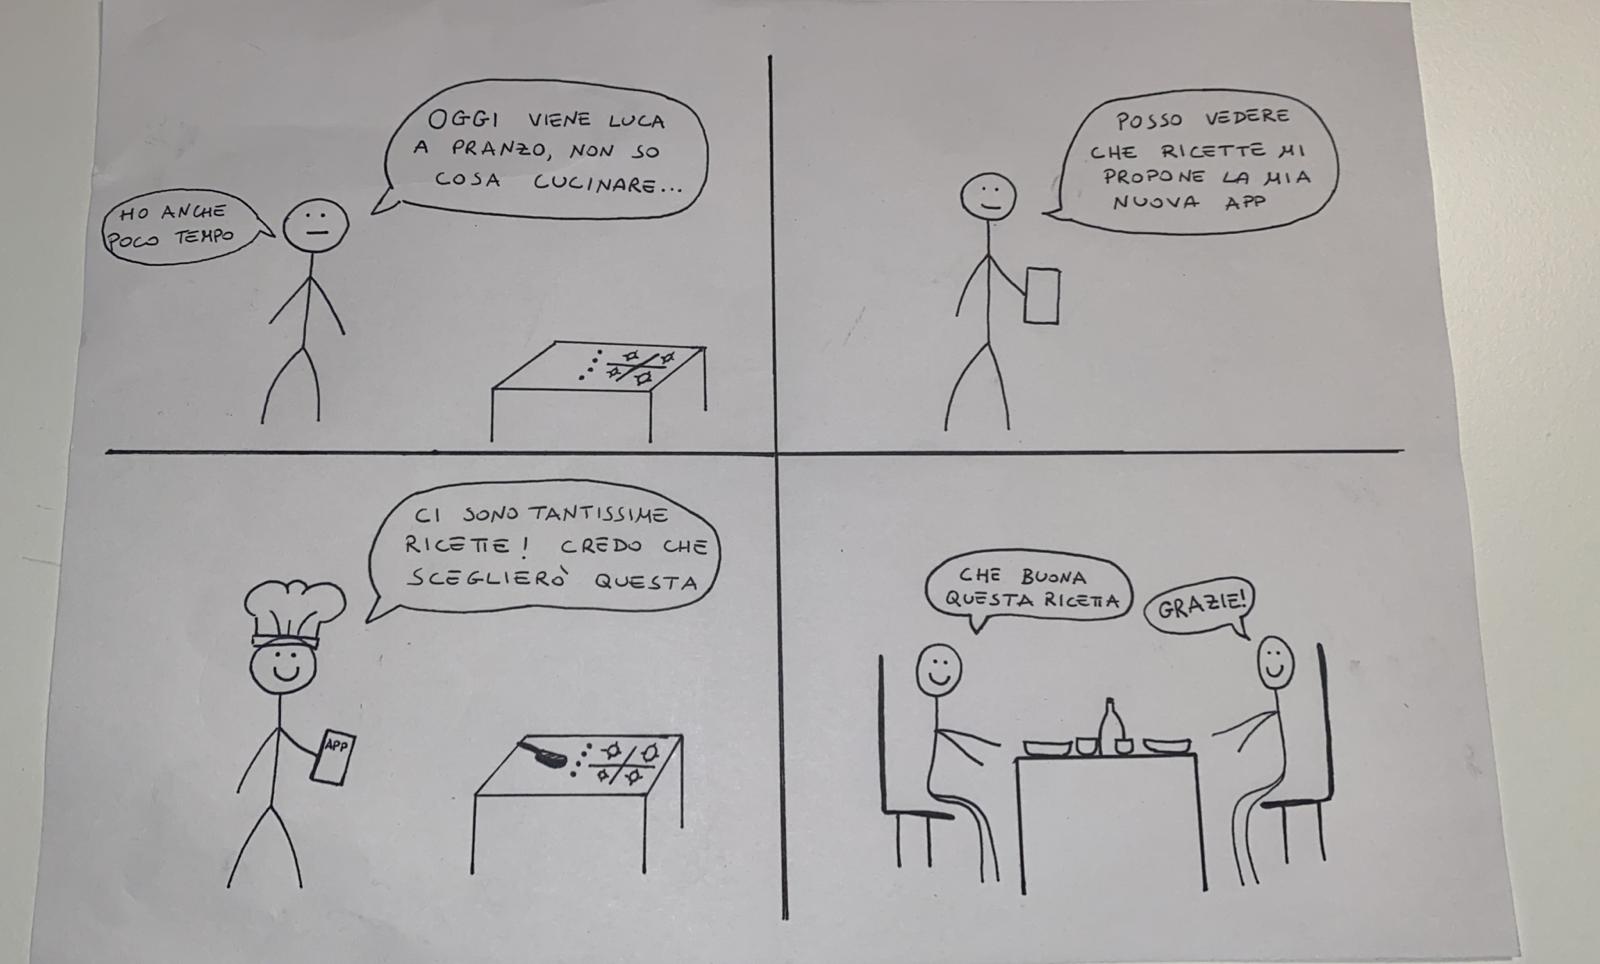 OGGI VIENE LUCA
A PRANZO, NON SO
COSA CUCINARE...
HO ANCHE
POCO TEMPO
POSSO VEDERE
CHE RICETTE MI
PROPONE LA MIA
NUOVA APP
CI SONO TANTISSIME
RICETTE! CREDO CHE
SCEGLIERÒ QUESTA
APP
CHE BUONA
QUESTA RICETTA
GRAZIE!